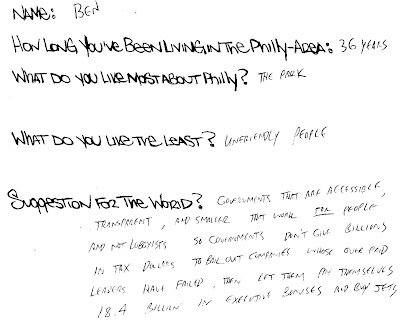 NAME: BEN
HOW LONG YOU'VE BEEN LIVING IN THE PHILLY-AREA: 36 YEARS
WHAT DO YOU LIKE MOST ABOUT PHILLY? THE PARK
WHAT DO YOU LIKE THE LEAST? UNFRIENDLY PEOPLE
SUGGESTION FOR THE WORLD? GOVERNMENTS THAT ARE ACCESSIBLE,
TRANSPARENT, AND SMALLER THAT WORK FOR PEOPLE
AND NOT LOBBYISTS SO GOVERNMENTS DON'T GIVE BILLIONS
IN TAX DOLLARS TO BAIL OUT COMPANIES WHOSE OVER PAID
LEADERS HAVE FAILED, THEN LET THEM PAY THEMSELVES
18.4 BILLION IN EXECUTIVE BONUSES AND BUY JETS